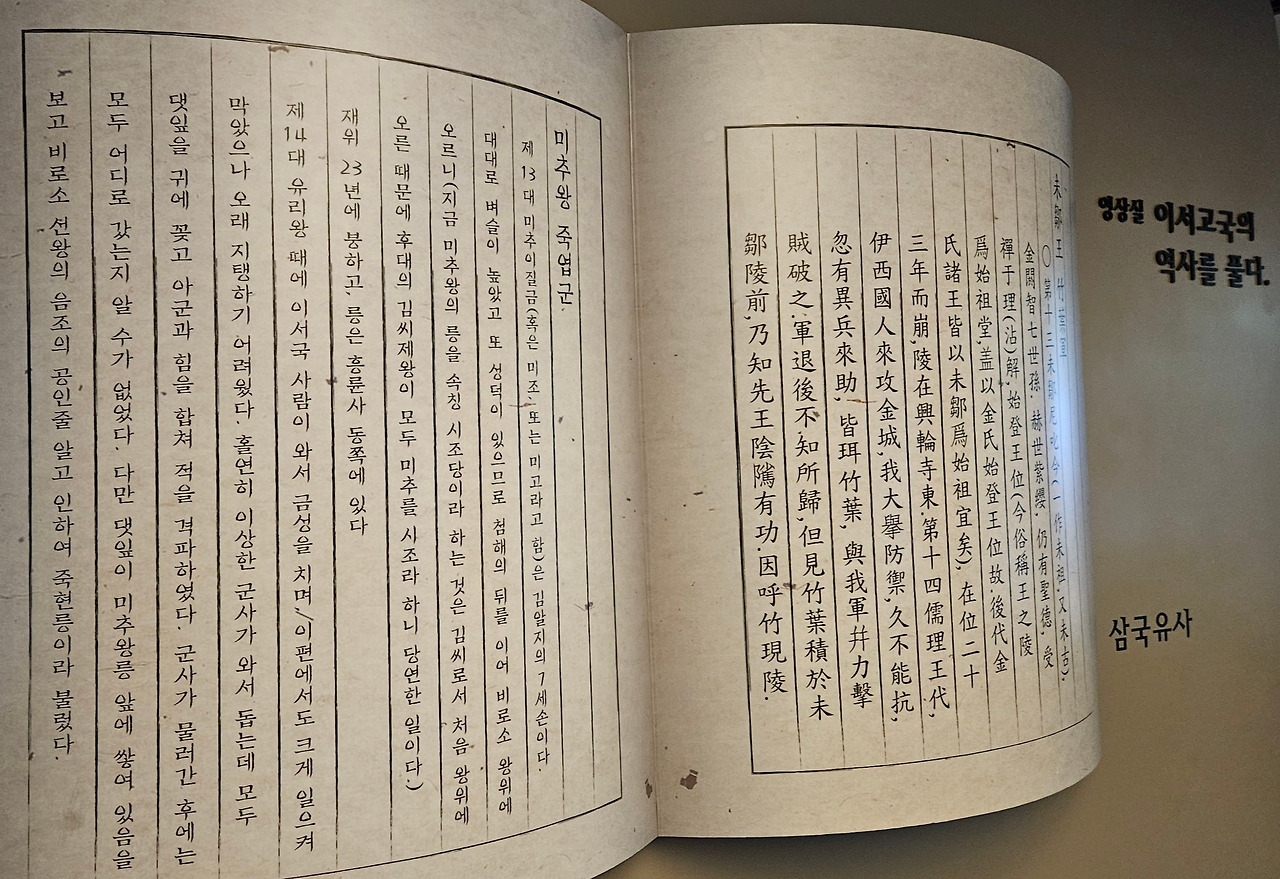 영상실 이서고국의
역사를 풀다.
삼국유사
未鄒王 竹葉軍
○第十三未鄒尼叱今(一作未祖.又未古).
金閼智七世孫. 赫世紫纓. 仍有聖德, 受
禪于理(沾)解, 始登王位(今俗稱王之陵
爲始祖堂,盖以金氏始登王位故.後代金
氏諸王皆以未鄒爲始祖宜矣), 在位二十
三年而崩,陵在興輪寺東.第十四儒理王代,
伊西國人來攻金城,我大擧防禦,久不能抗,
忽有異兵來助, 皆珥竹葉, 與我軍幷力擊
賊破之.軍退後不知所歸,但見竹葉積於未
鄒陵前,乃知先王陰隲有功.因呼竹現陵.
미추왕 죽엽군.
제 13대 미추이질금(혹은 미조, 또는 미고라고 함)은 김알지의 7세손이다.
대대로 벼슬이 높았고 또 성덕이 있으므로 첨해의 뒤를 이어 비로소 왕위에
오르니(지금 미추왕의 릉을 속칭 시조당이라 하는 것은 김씨로서 처음 왕위에
오른 때문에 후대의 김씨제왕이 모두 미추를 시조라 하니 당연한 일이다.)
재위 23년에 붕하고, 릉은 흥륜사 동쪽에 있다
제 14대 유리왕 때에 이서국 사람이 와서 금성을 치며/이편에서도 크게 일으켜
막았으나 오래 지탱하기 어려웠다. 홀연히 이상한 군사가 와서 돕는데 모두
댓잎을 귀에 꽂고 아군과 힘을 합쳐 적을 격파하였다. 군사가 물러간 후에는
모두 어디로 갔는지 알 수가 없었다. 다만 댓잎이 미추왕릉 앞에 쌓여 있음을
보고 비로소 선왕의 음조의 공인줄 알고 인하여 죽현릉이라 불렀다.